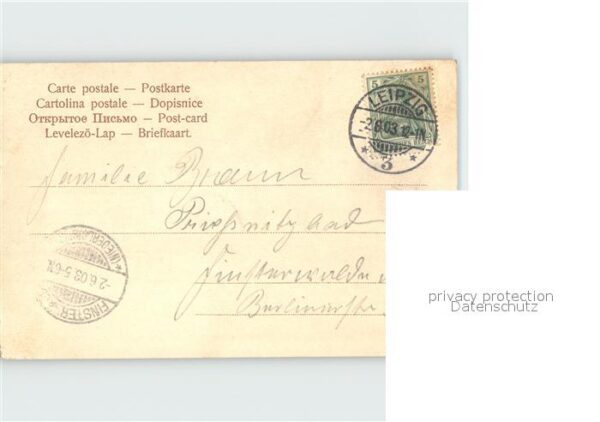 Carte postale — Postkarte
Cartolina postale — Dopisnice
Открытое Письмо — Post-card
Levelező-Lap — Briefkaart.
5 5
LEIPZIG
-2.6.03. 12-1N.
* 3 *
Familie Braun
Priessnitzbad
Finsterwalde
Berlinerstr
FINSTER
(NIEDERLAUS
-2.6.03. 5-6N.
privacy protection
Datenschutz